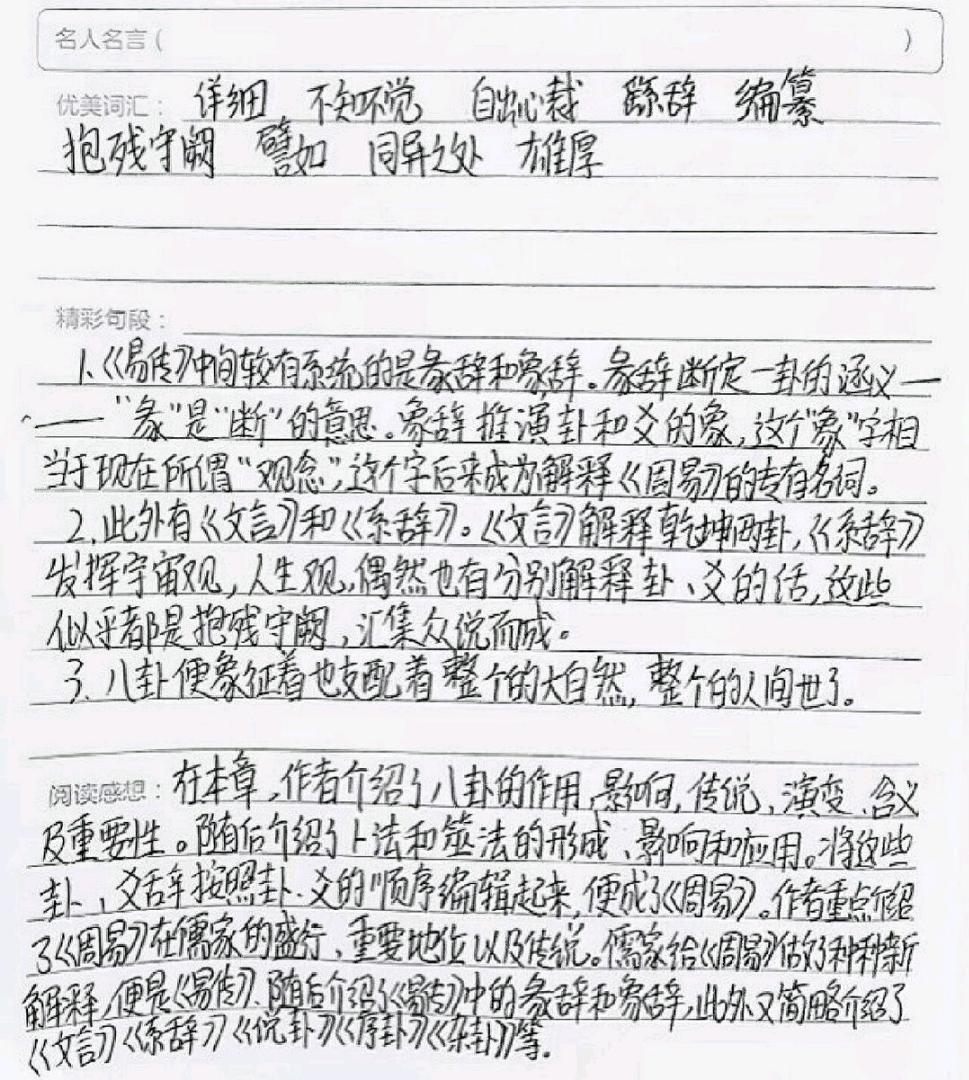 名人名言（                    ）
优美词汇： 详细 不知不觉 自出心裁 繇辞 编纂
抱残守阙 譬如 同异之处 雄厚
精彩句段：
1.《易传》中间较有系统的是彖辞和象辞。彖辞断定一卦的涵义—
——“彖”是“断”的意思。象辞推演卦和爻的象，这个“象”字相
当于现在所谓“观念”，这个字后来成为解释《周易》的专有名词。
2.此外有《文言》和《系辞》。《文言》解释乾坤两卦，《系辞》
发挥宇宙观，人生观，偶然也有分别解释卦、爻的话，这些
似乎都是抱残守阙，汇集众说而成。
3.八卦便象征着也支配着整个的大自然，整个的人间世了。
阅读感想：在本章，作者介绍了八卦的作用，影响，传说，演变、含义
及重要性。随后介绍了卜法和筮法的形成、影响和应用。将这些
卦、爻辞按照卦、爻的顺序编辑起来，便成了《周易》。作者重点介绍
了《周易》在儒家的盛行、重要地位以及传说。儒家给《周易》做了种种新
解释，便是《易传》、随后介绍了《易传》中的彖辞和象辞，此外又简略介绍了
《文言》《系辞》《说卦》《序卦》《杂卦》等。